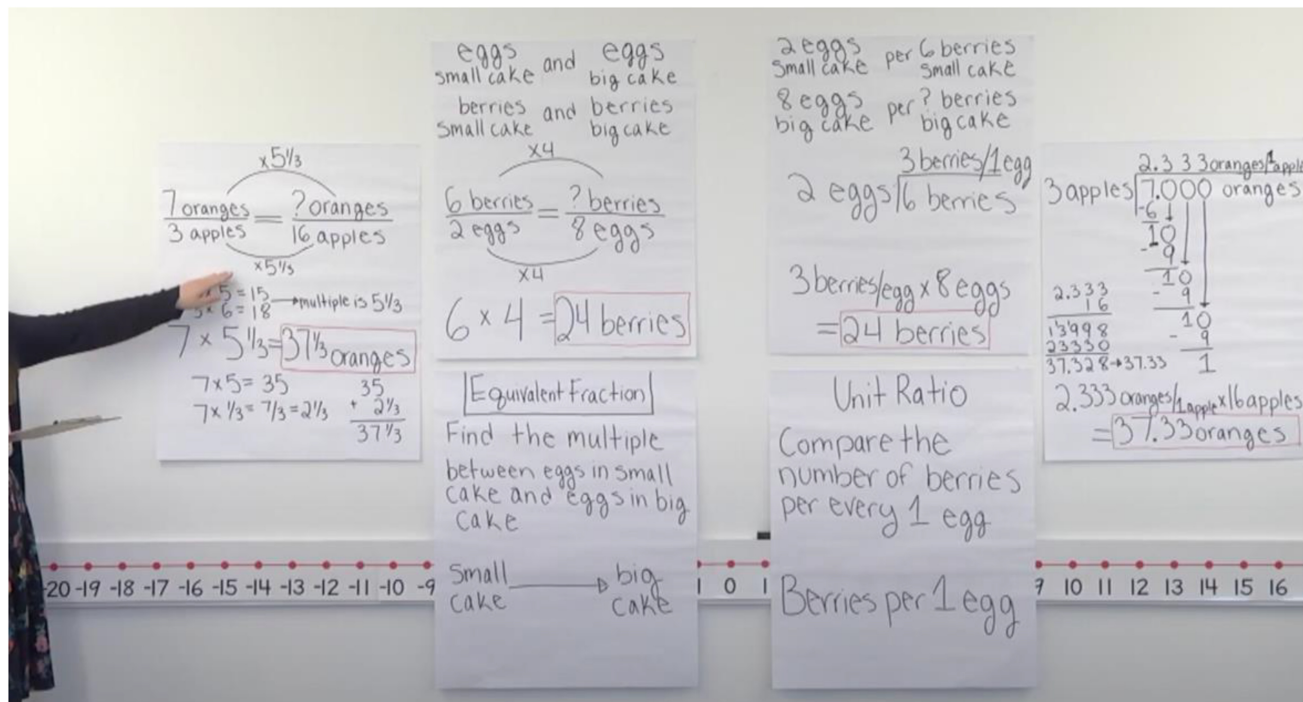 ×5⅓
7 oranges = ? oranges
3 apples 16 apples
×5⅓
× 5 = 15
× 6 = 18 → multiple is 5⅓
7 × 5⅓ = 37⅓ oranges
7 × 5 = 35
7 × ⅓ = 7/3 = 2⅓
35
+ 2⅓
37⅓
eggs and eggs
small cake big cake
berries and berries
small cake big cake
×4
6 berries = ? berries
2 eggs 8 eggs
×4
6 × 4 = 24 berries
Equivalent Fraction
Find the multiple
between eggs in small
cake and eggs in big
cake
Small → big
cake cake
2 eggs per 6 berries
small cake small cake
8 eggs per ? berries
big cake big cake
3 berries/1 egg
2 eggs 6 berries
3 berries/egg × 8 eggs
= 24 berries
Unit Ratio
Compare the
number of berries
per every 1 egg
Berries per 1 egg
2.333 oranges/1 apple
3 apples 7.000 oranges
-6
10
- 9
10
- 9
10
- 9
1
2.333
16
13998
23330
37.328 → 37.33
2.333 oranges/1 apple × 16 apples
= 37.33 oranges
-20 -19 -18 -17 -16 -15 -14 -13 -12 -11 -10 -9
0 1
9 10 11 12 13 14 15 16